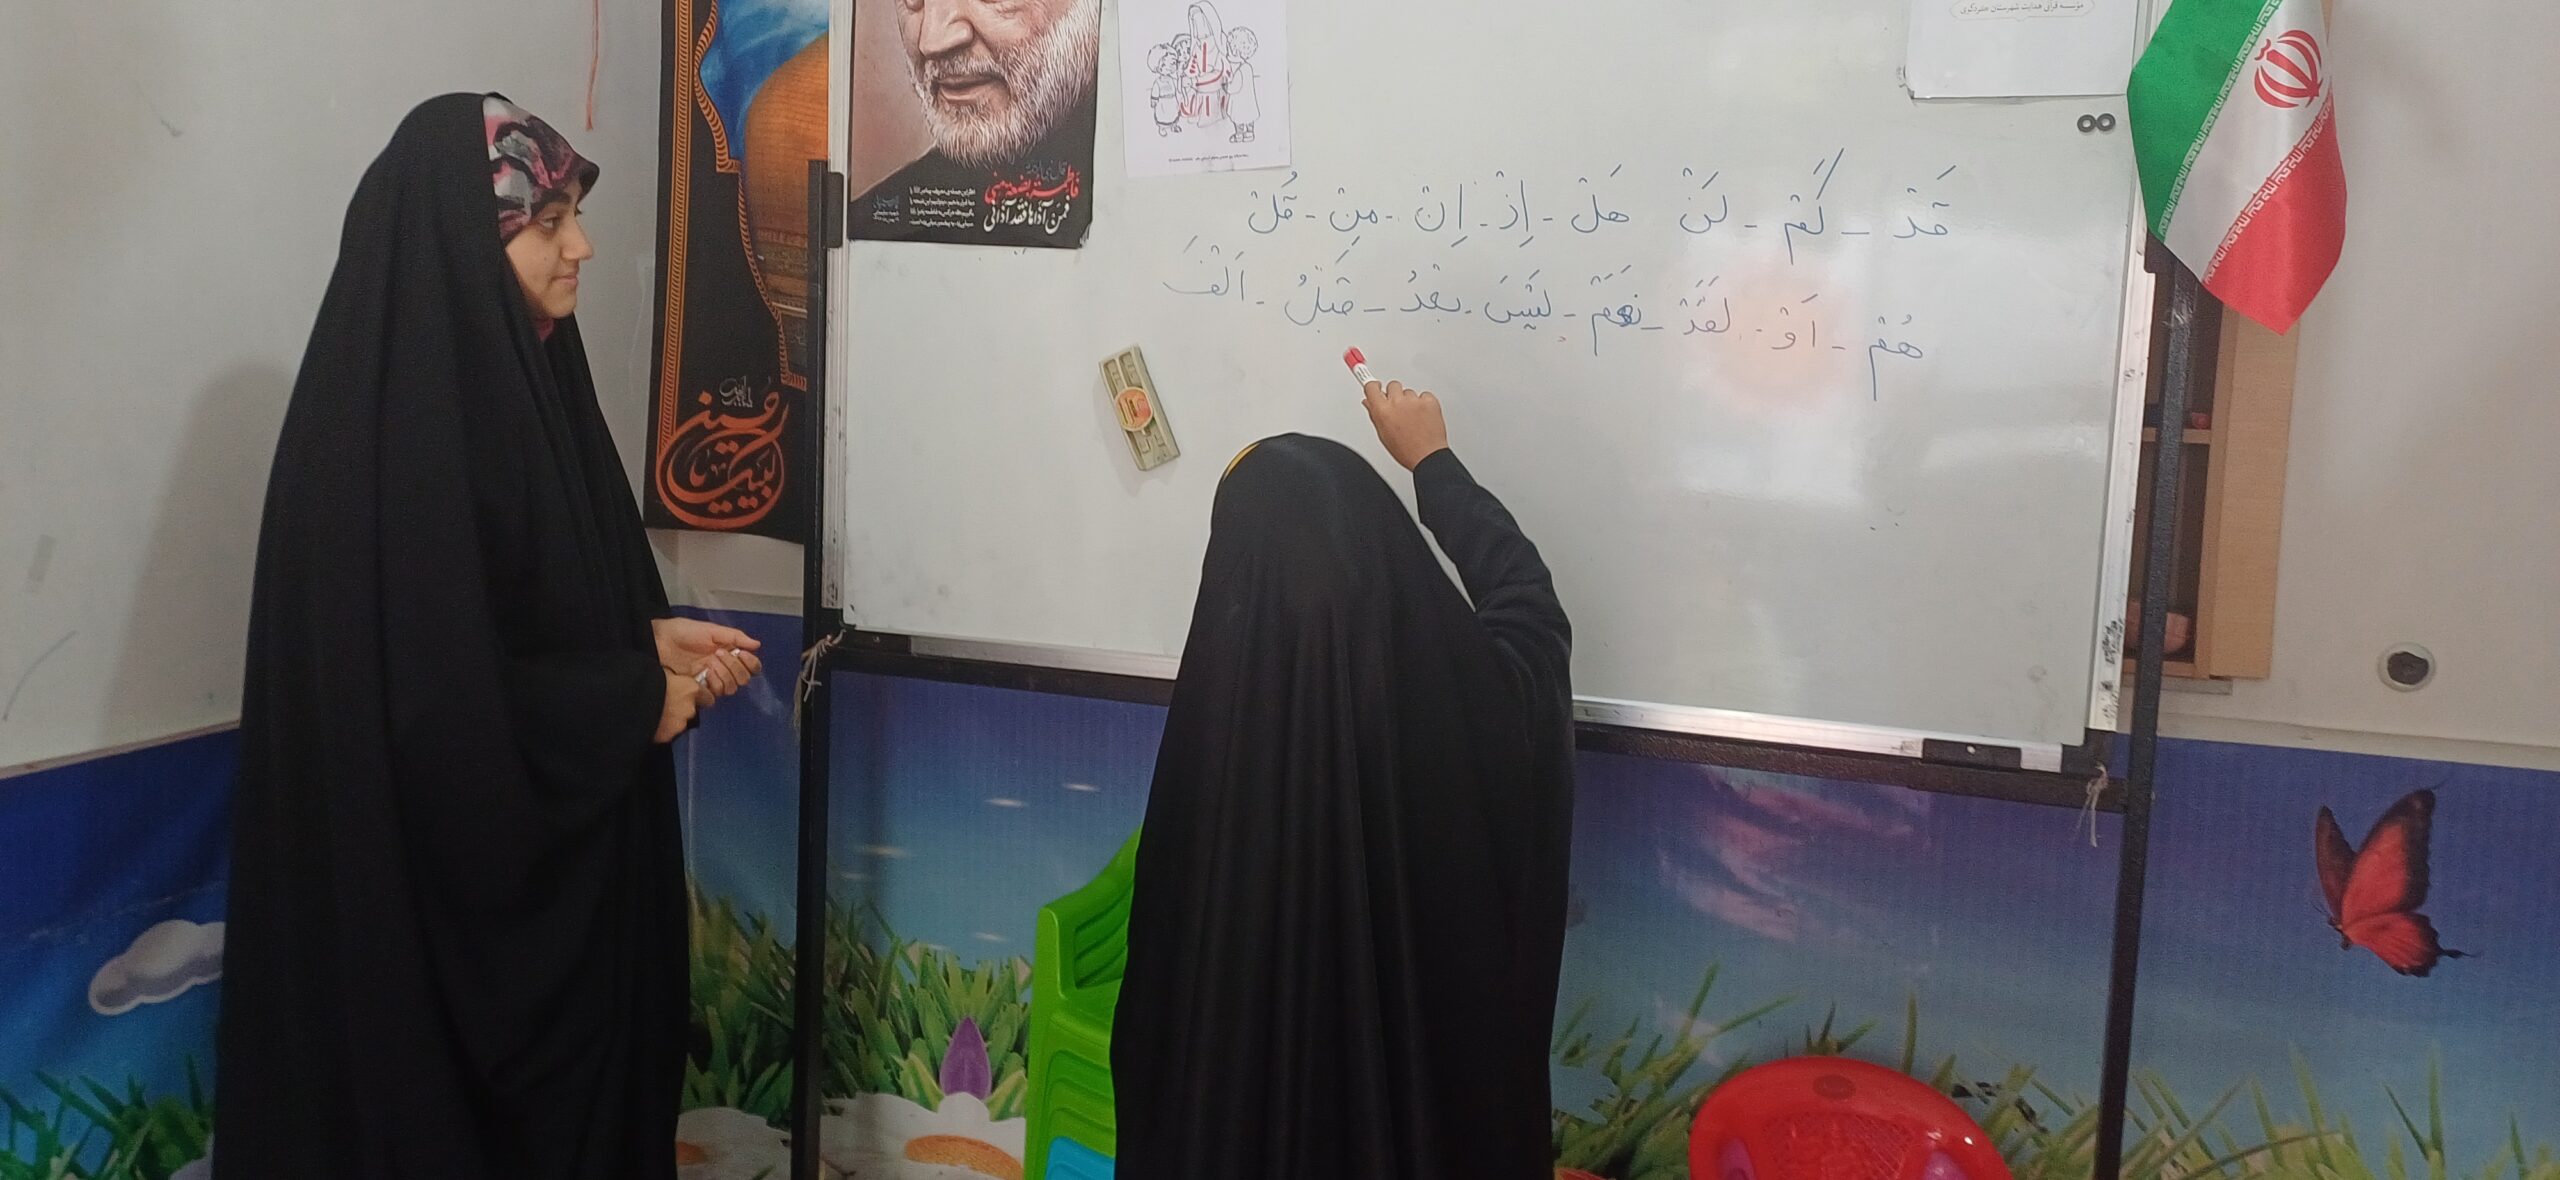 مؤسسه قرآنی هدایت شهرستان
فاطمة بضعة منی
فمن آذاها فقد آذانی
لبیک یا حسین
قَدْ - كَمْ - لَنْ هَلْ - اِذْ - اِنْ - مِنْ - قُلْ
هُمْ - اَوْ - لَقَدْ - نَعَمْ - لَيْسَ - بَعْدُ - قَبْلُ - اَلْفَ